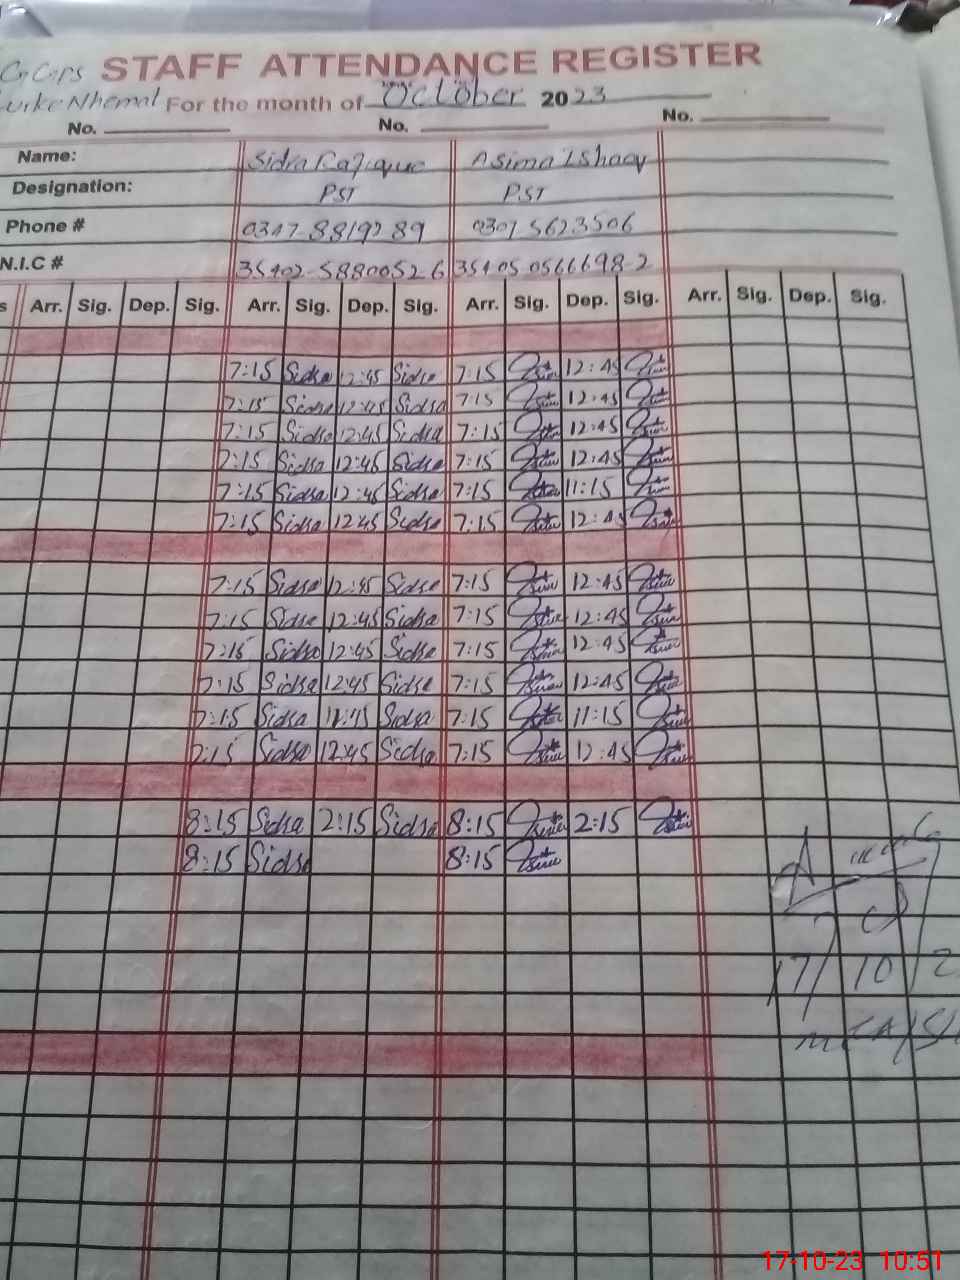 STAFF ATTENDANCE REGISTER
For the month of October 2023
No. No. No.
Name: Sidra Rafique Asima Ishaq
Designation: PST PST
Phone # 0347-8819289 0301 5623506
N.I.C # 35402-58800526 35405 0566698-2
s Arr. Sig. Dep. Sig. Arr. Sig. Dep. Sig. Arr. Sig. Dep. Sig. Arr. Sig. Dep. Sig.
7:15 Sidra 12:45 Sidra 7:15 12:45
7:15 Sidra 12:45 Sidra 7:15 12:45
7:15 Sidra 12:45 Sidra 7:15 12:45
7:15 Sidra 12:45 Sidra 7:15 12:45
7:15 Sidra 12:45 Sidra 7:15 11:15
7:15 Sidra 12:45 Sidra 7:15 12:45
7:15 Sidra 12:45 Sidra 7:15 12:45
7:15 Sidra 12:45 Sidra 7:15 12:45
7:15 Sidra 12:45 Sidra 7:15 12:45
7:15 Sidra 12:45 Sidra 7:15 12:45
7:15 Sidra Sidra 7:15 11:15
7:15 Sidra 12:45 Sidra 7:15 12:45
8:15 Sidra 2:15 Sidra 8:15 2:15
8:15 Sidra 8:15
17/10/2
17-10-23 10:51